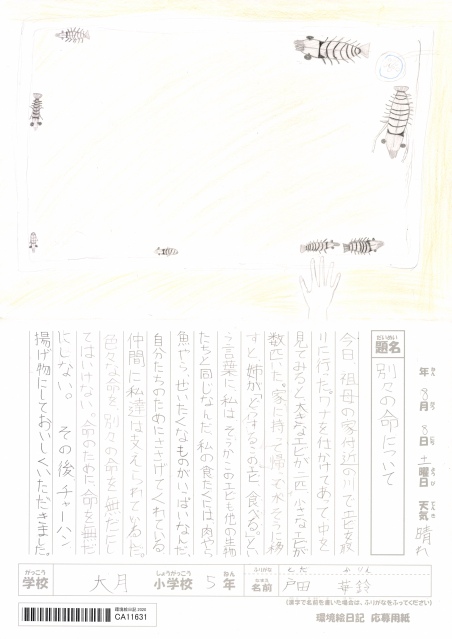 年 8月 8日 土曜日 天気 晴れ
ねん がつ にち ようび てんき
だいめい
題名
別々の命について
今日、祖母の家付近の
りに行った。ワナを仕かけてあって中を
見てみると大きなエビが一匹、小さなエビが
数匹いた。家に持って帰って水そうに移
すと、姉が、「どうする、このエビ、食べる。」とい
う言葉に、私は、そうか、このエビも他の生物
たちと同じなんだ。私の食たくには肉やら
魚やら、ぜいたくなものがいっぱいなんだ。
自分たちのためにささげてくれている
仲間に私達は支えられているんだ。
色々な命を、別々の命を無だにし
てはいけない。命のために命を無だ
にしない。 その後、チャーハン
揚げ物にしておいしくいただきました。
がっこう しょうがっこう ねん なまえ
学校 大月 小学校 5年 名前 戸田 華鈴
ふりがな とだ かりん
(漢字で名前を書いた場合は、ふりがなをふってください)
環境絵日記 2020
CA11631
環境絵日記 応募用紙